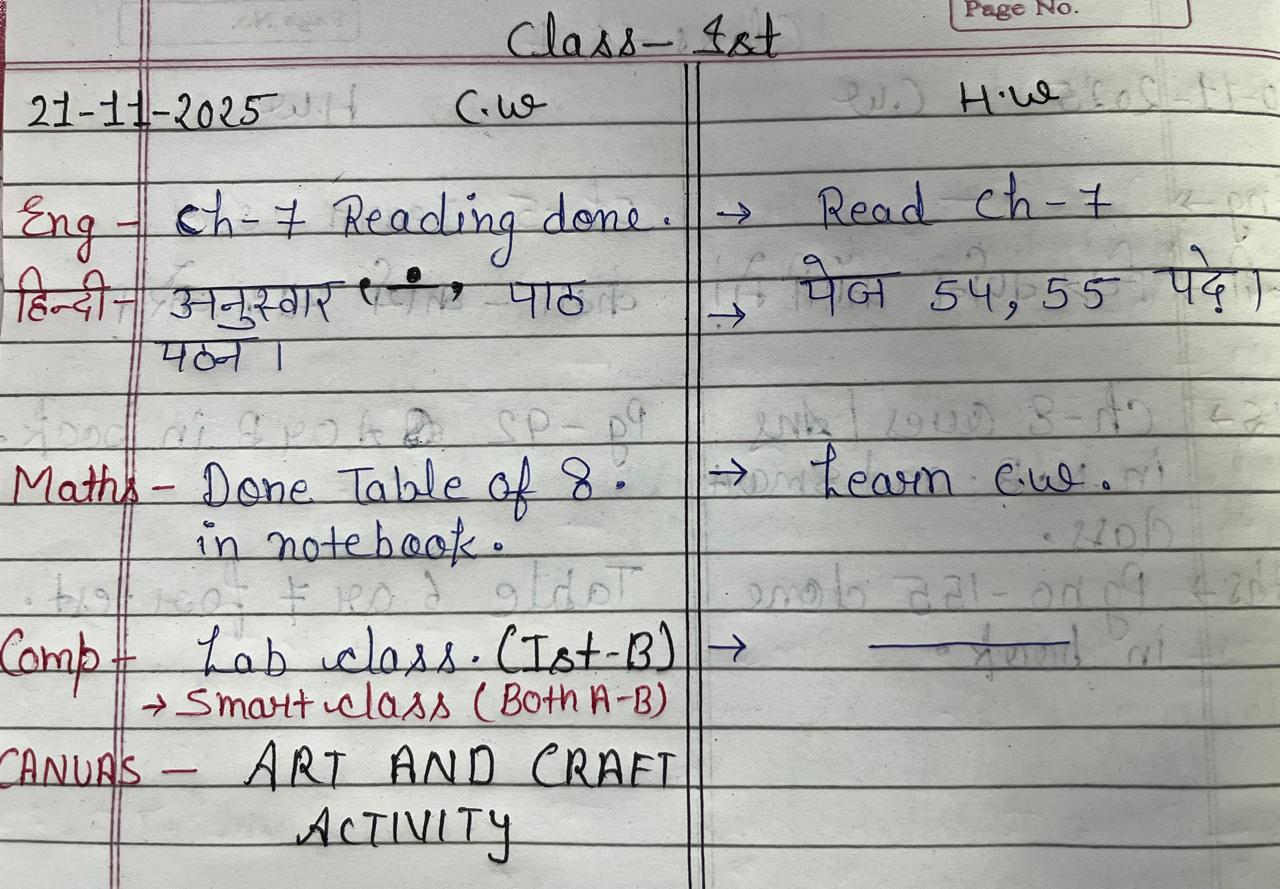 Page No.
Class- Ist
21-11-2025 C.W H.W
Eng - Ch-7 Reading done. → Read Ch-7
हिन्दी - अनुस्वार ( ं ) पाठ → पेज 54, 55 पढ़े।
पठन ।
Maths - Done Table of 8. → Learn C.W.
in notebook.
Comp - Lab class. (Ist-B) → ———
→ Smart class (Both A-B)
CANVAS — ART AND CRAFT
ACTIVITY